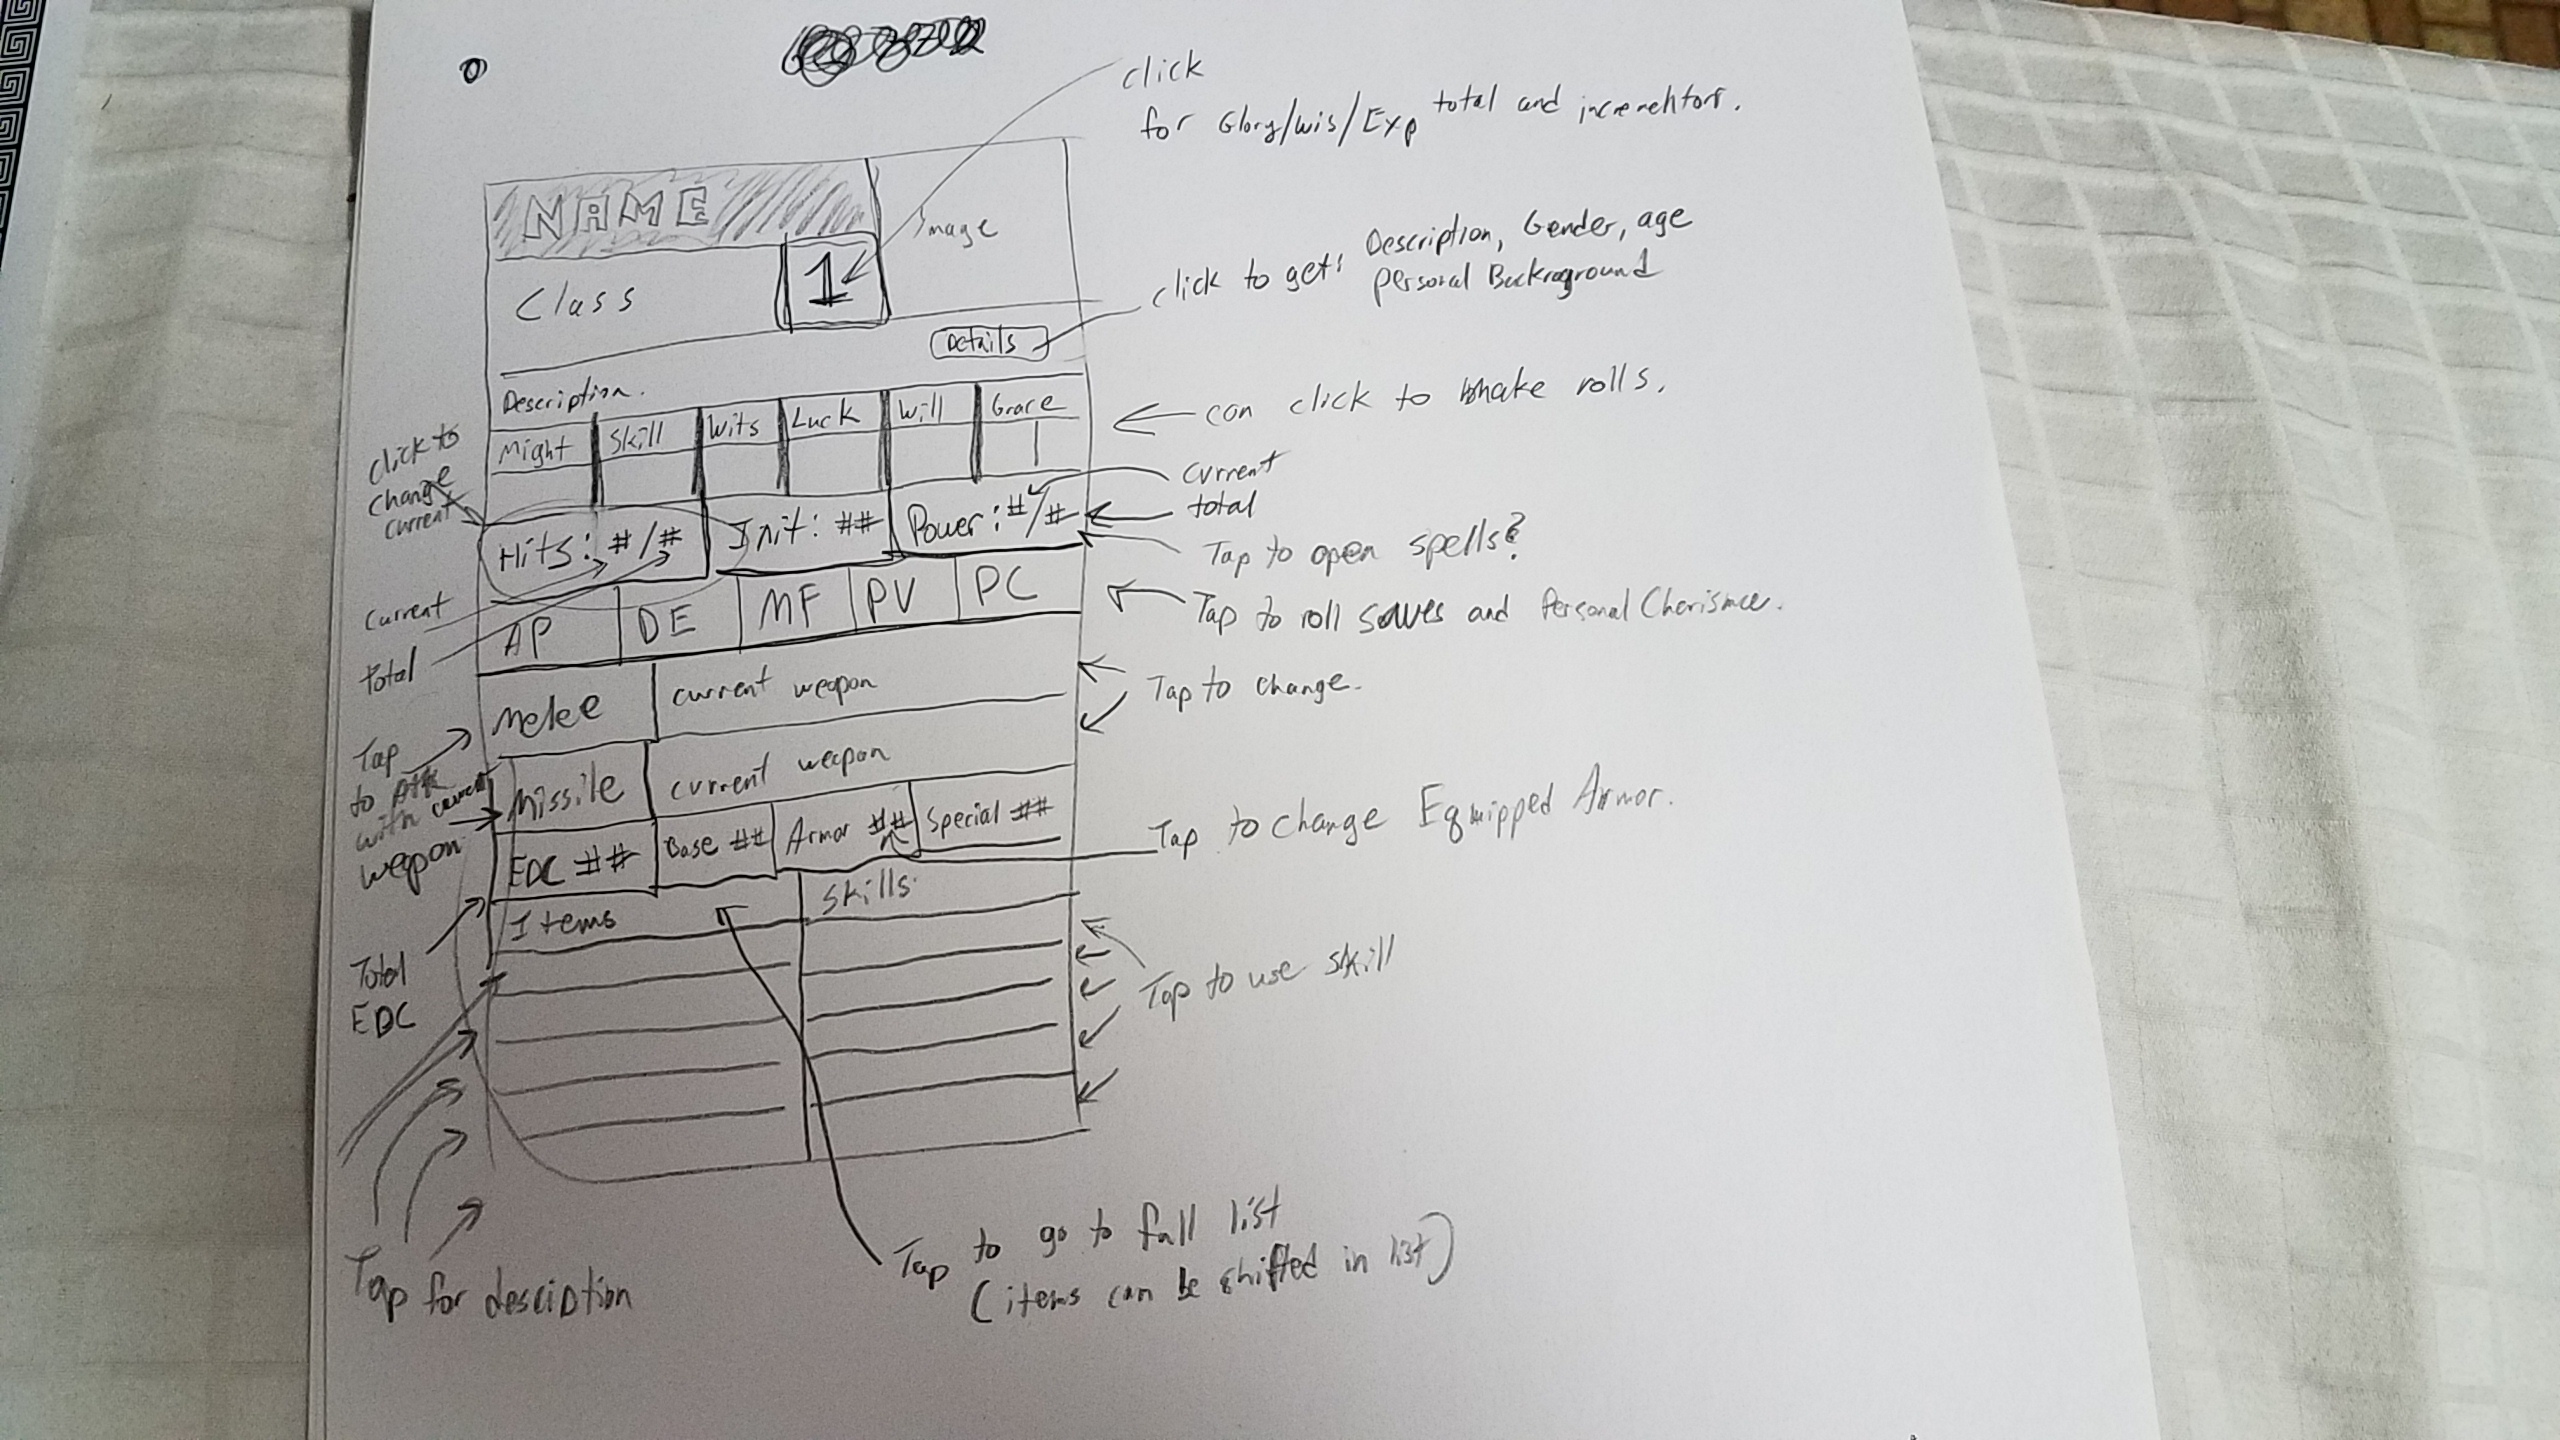 click
for Glory/Wis/Exp total and incrementors.
NAME
image
Class
1
click to get: Description, Gender, age
personal Backraground
Details
Description.
can click to make rolls.
Might Skill Wits Luck Will Grace
click to
change
current
current
total
Hits: #/# Init: ## Power: #/#
Tap to open spells?
current
total
AP DE MF PV PC
Tap to roll saves and Personal Charisma.
Melee current weapon
Tap to change.
Tap
to Atk
with current
weapon
Missile current weapon
EDC ## Base ## Armor ## Special ##
Tap to change Equipped Armor.
Total
EDC
Items Skills
Tap to use skill
Tap to go to full list
(items can be shifted in list)
Tap for desciption